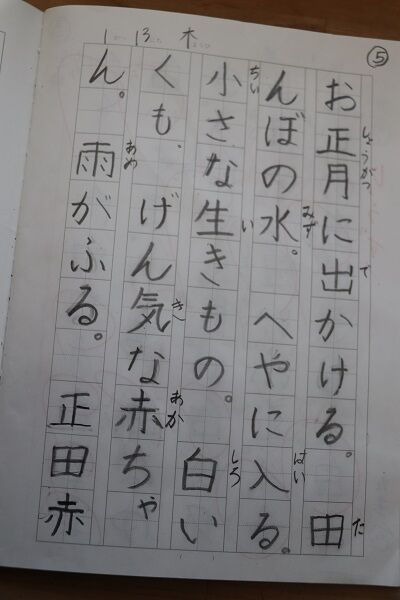 ⑤
1 13 木
お正月に出かける。田
んぼの水。へやに入る。
小さな生きもの。白い
くも。げん気な赤ちゃ
ん。雨がふる。正田赤
しょうがつ
で
た
みず
はい
ちい
い
しろ
き
あか
あめ